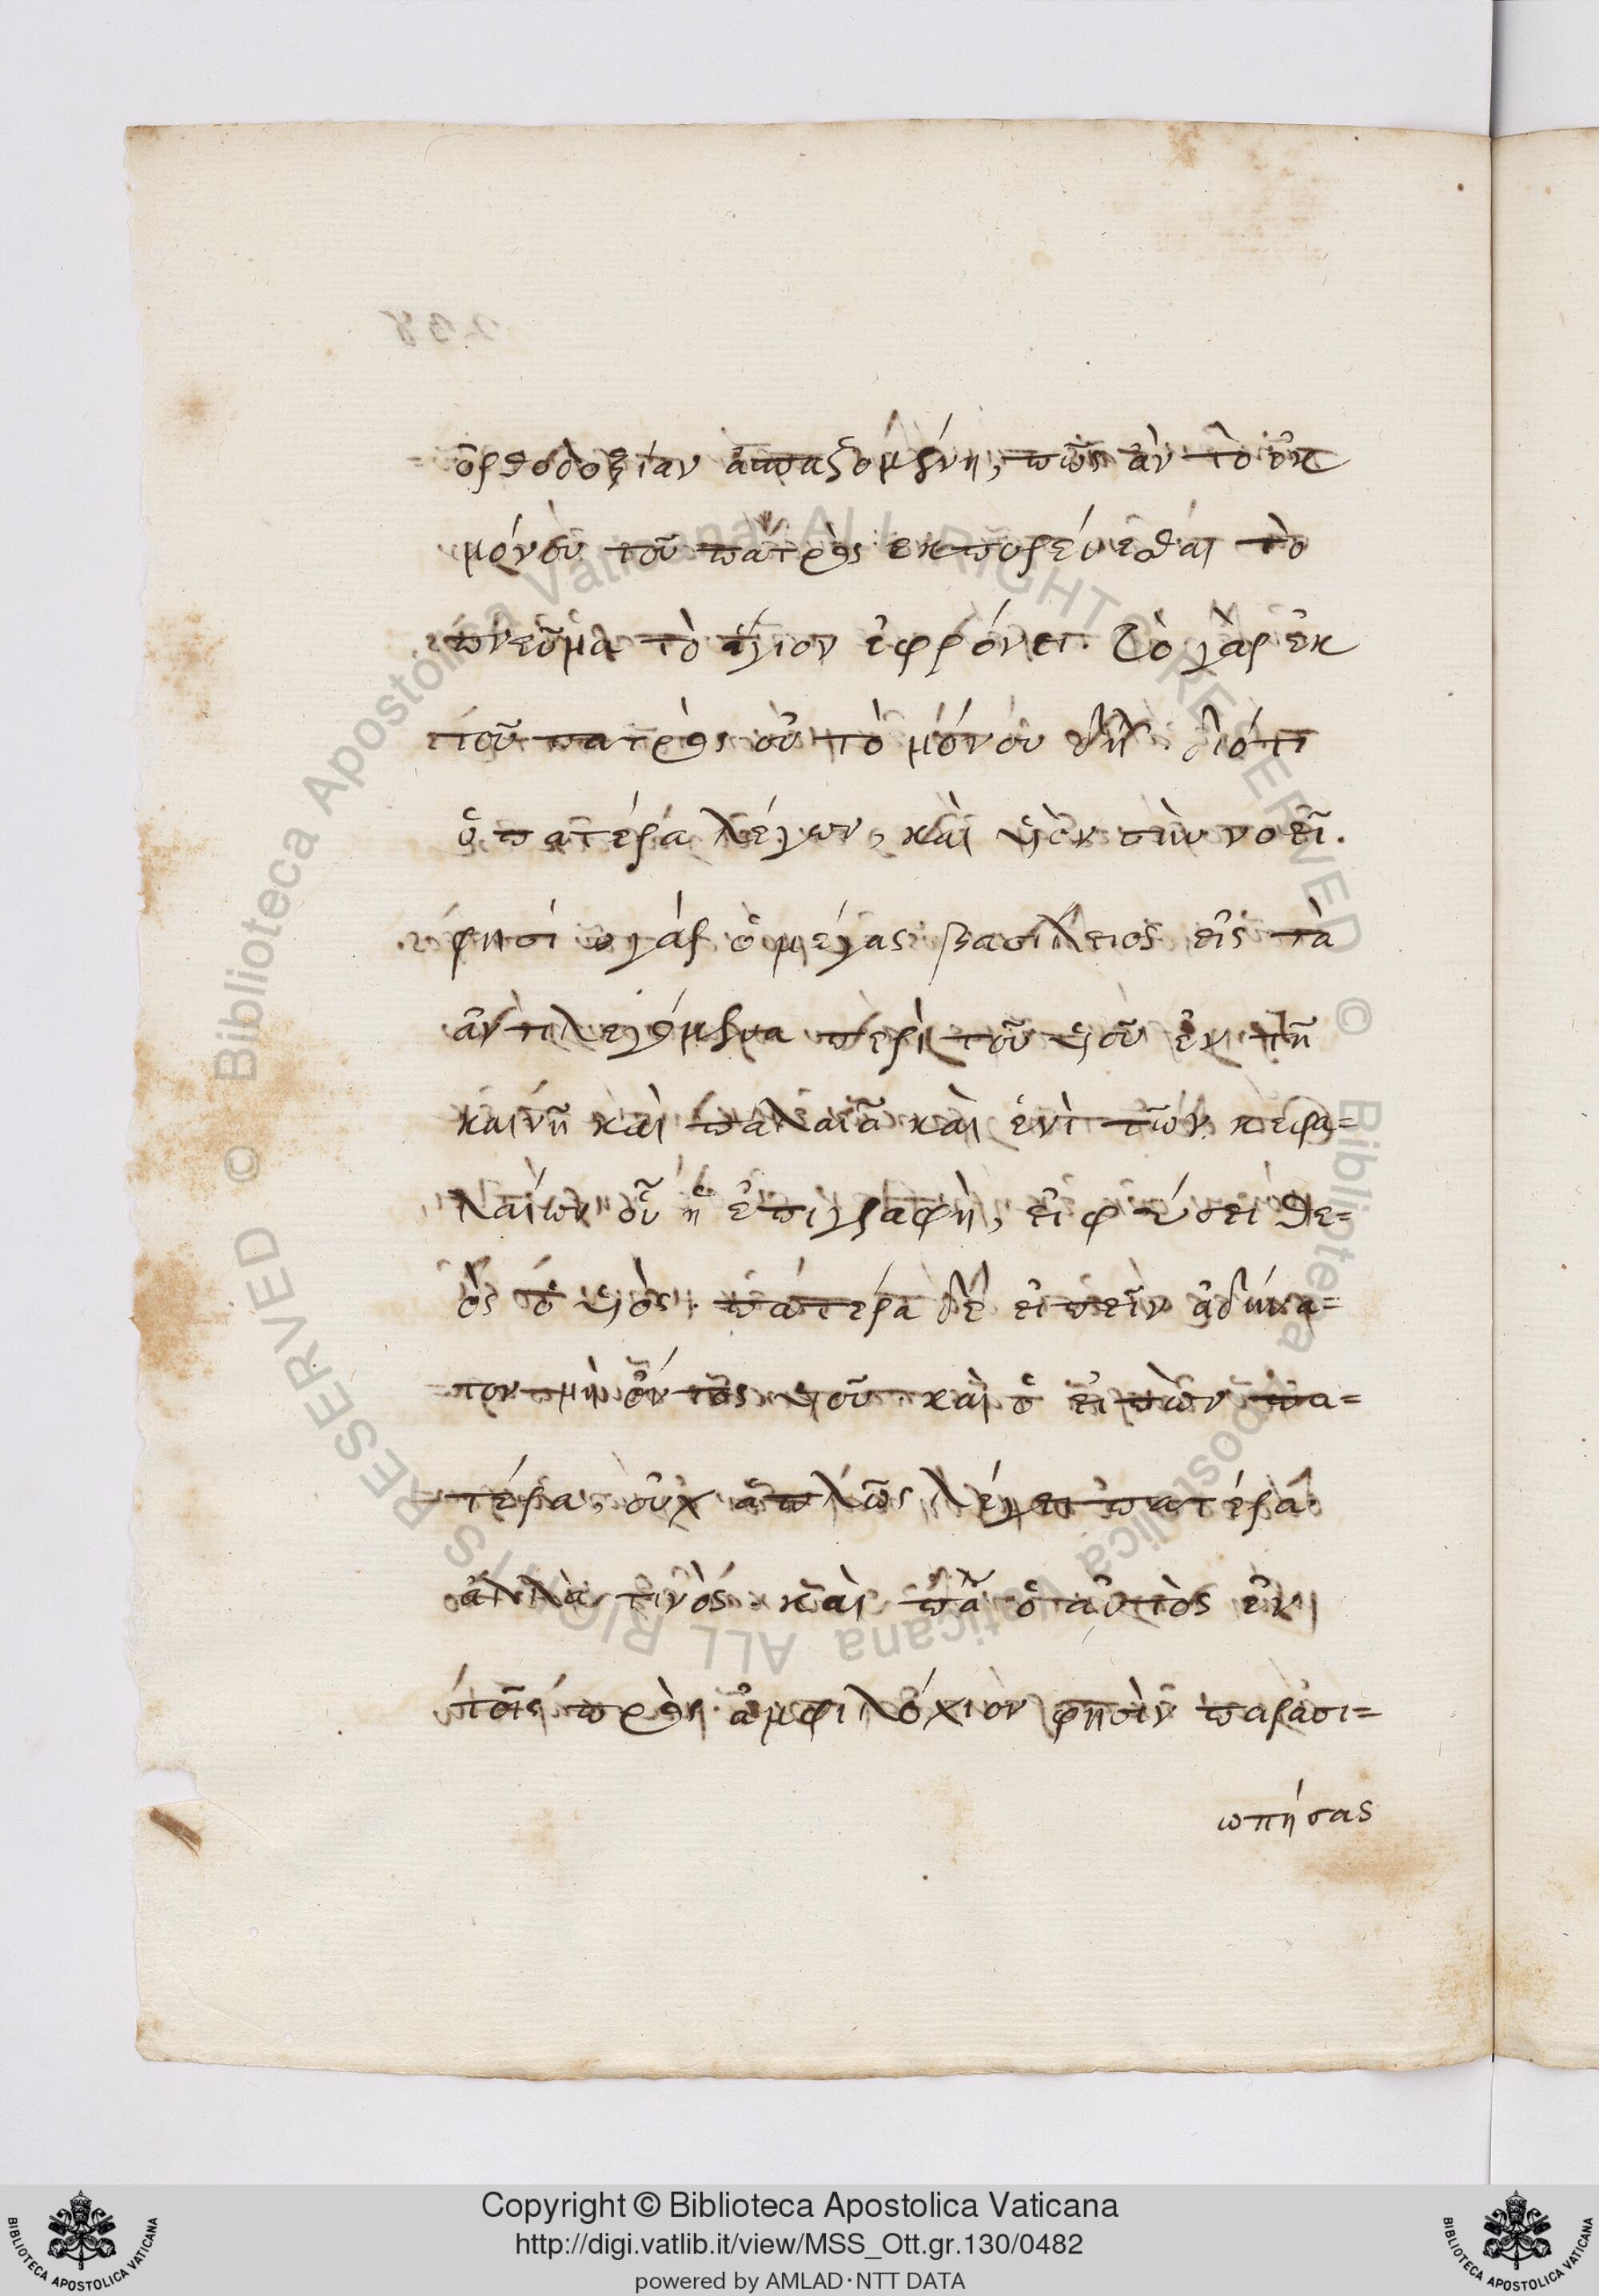 ὀρθοδοξίαν ἀσπαζομένη, πῶς ἂν τὸ ἐκ
μόνου τοῦ πατρὸς ἐκπορεύεσθαι τὸ
πνεῦμα τὸ ἅγιον ἐφρόνει. Τὸ γὰρ ἐκ
τοῦ πατρὸς οὐ τὸ μόνου δηλοῖ. διότι
ὁ πατέρα λέγων, καὶ υἱὸν συννοεῖ.
φησί γάρ ὁ μέγας βασίλειος εἰς τὰ
ἀντιλεγόμενα περὶ τοῦ υἱοῦ ἐν τῇ
καινῇ καὶ παλαιᾷ καὶ ἑνὶ τῶν κεφα=
λαίων οὗ ἡ ἐπιγραφὴ, εἰ φύσει θε=
ὸς ὁ υἱὸς. πατέρα δὲ εἰπεῖν ἀδύνα=
τον μὴ ὄντος υἱοῦ. καὶ ὁ εἰπὼν πα=
τέρα, οὐχ ἁπλῶς λέγει πατέρα
ἀλλὰ τινός. καὶ πάλιν ὁ αὐτὸς ἐν
τοῖς πρὸς ἀμφιλόχιον φησὶν παρασι=
ωπήσας
Copyright © Biblioteca Apostolica Vaticana
http://digi.vatlib.it/view/MSS_Ott.gr.130/0482
powered by AMLAD·NTT DATA
BIBLIOTECA APOSTOLICA VATICANA
BIBLIOTECA APOSTOLICA VATICANA
© Biblioteca Apostolica Vaticana ALL RIGHTS RESERVED
© Biblioteca Apostolica Vaticana ALL RIGHTS RESERVED